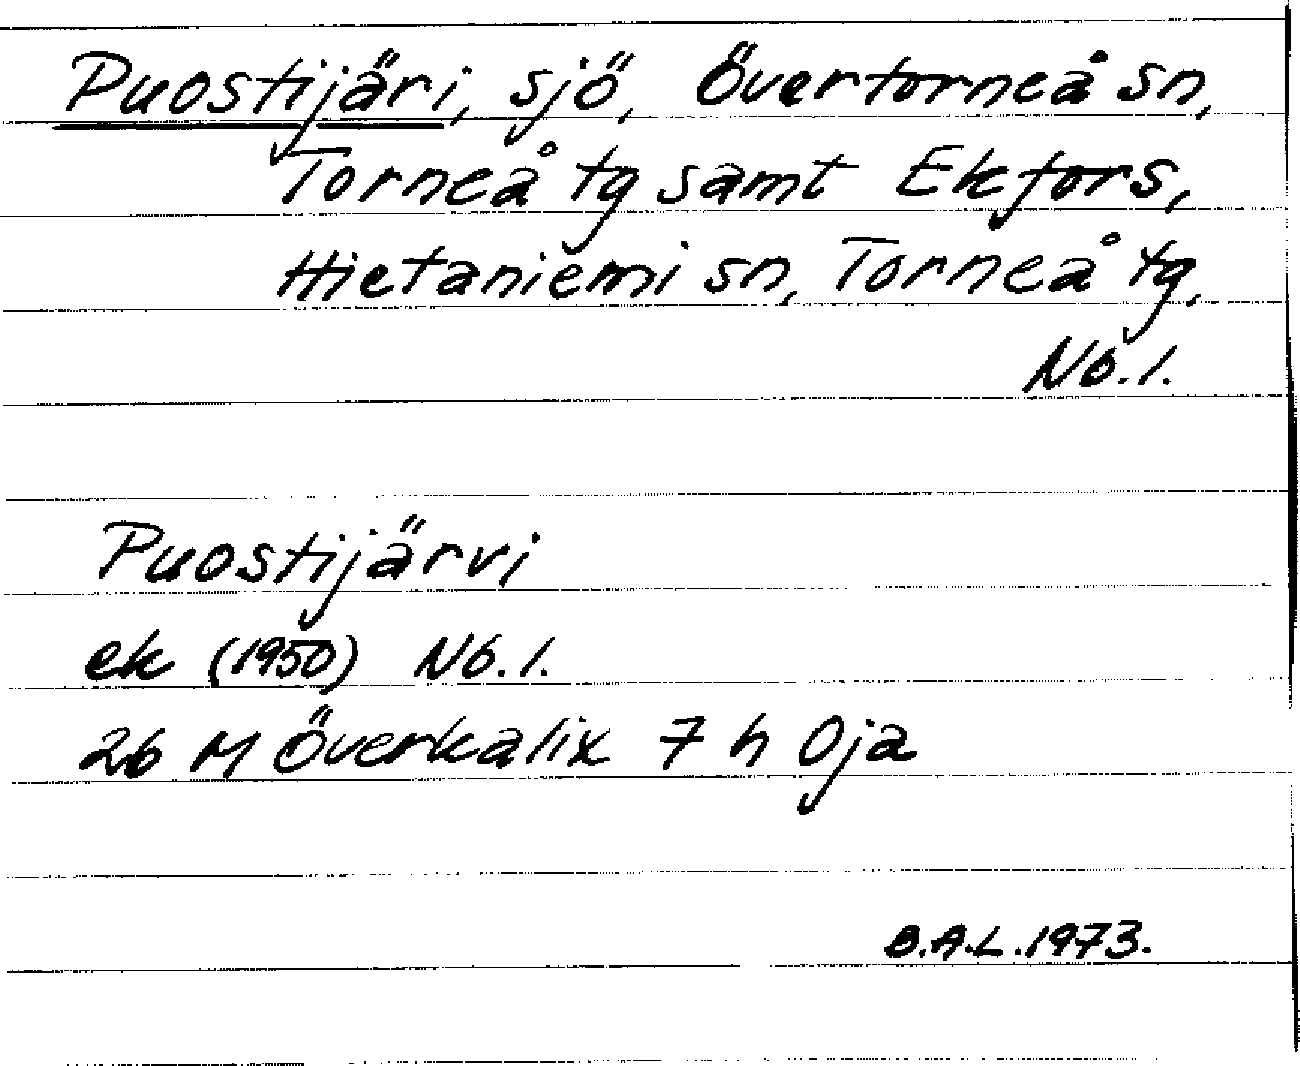 Puostijäri, sjö, Övertorneå sn,
Torneå tg samt Ekfors,
Hietaniemi sn, Torneå tg,
Nb.l.
Puostijärvi
ek (1950) Nb.l.
26 M Överkalix 7 h Oja
B.A.L. 1973.